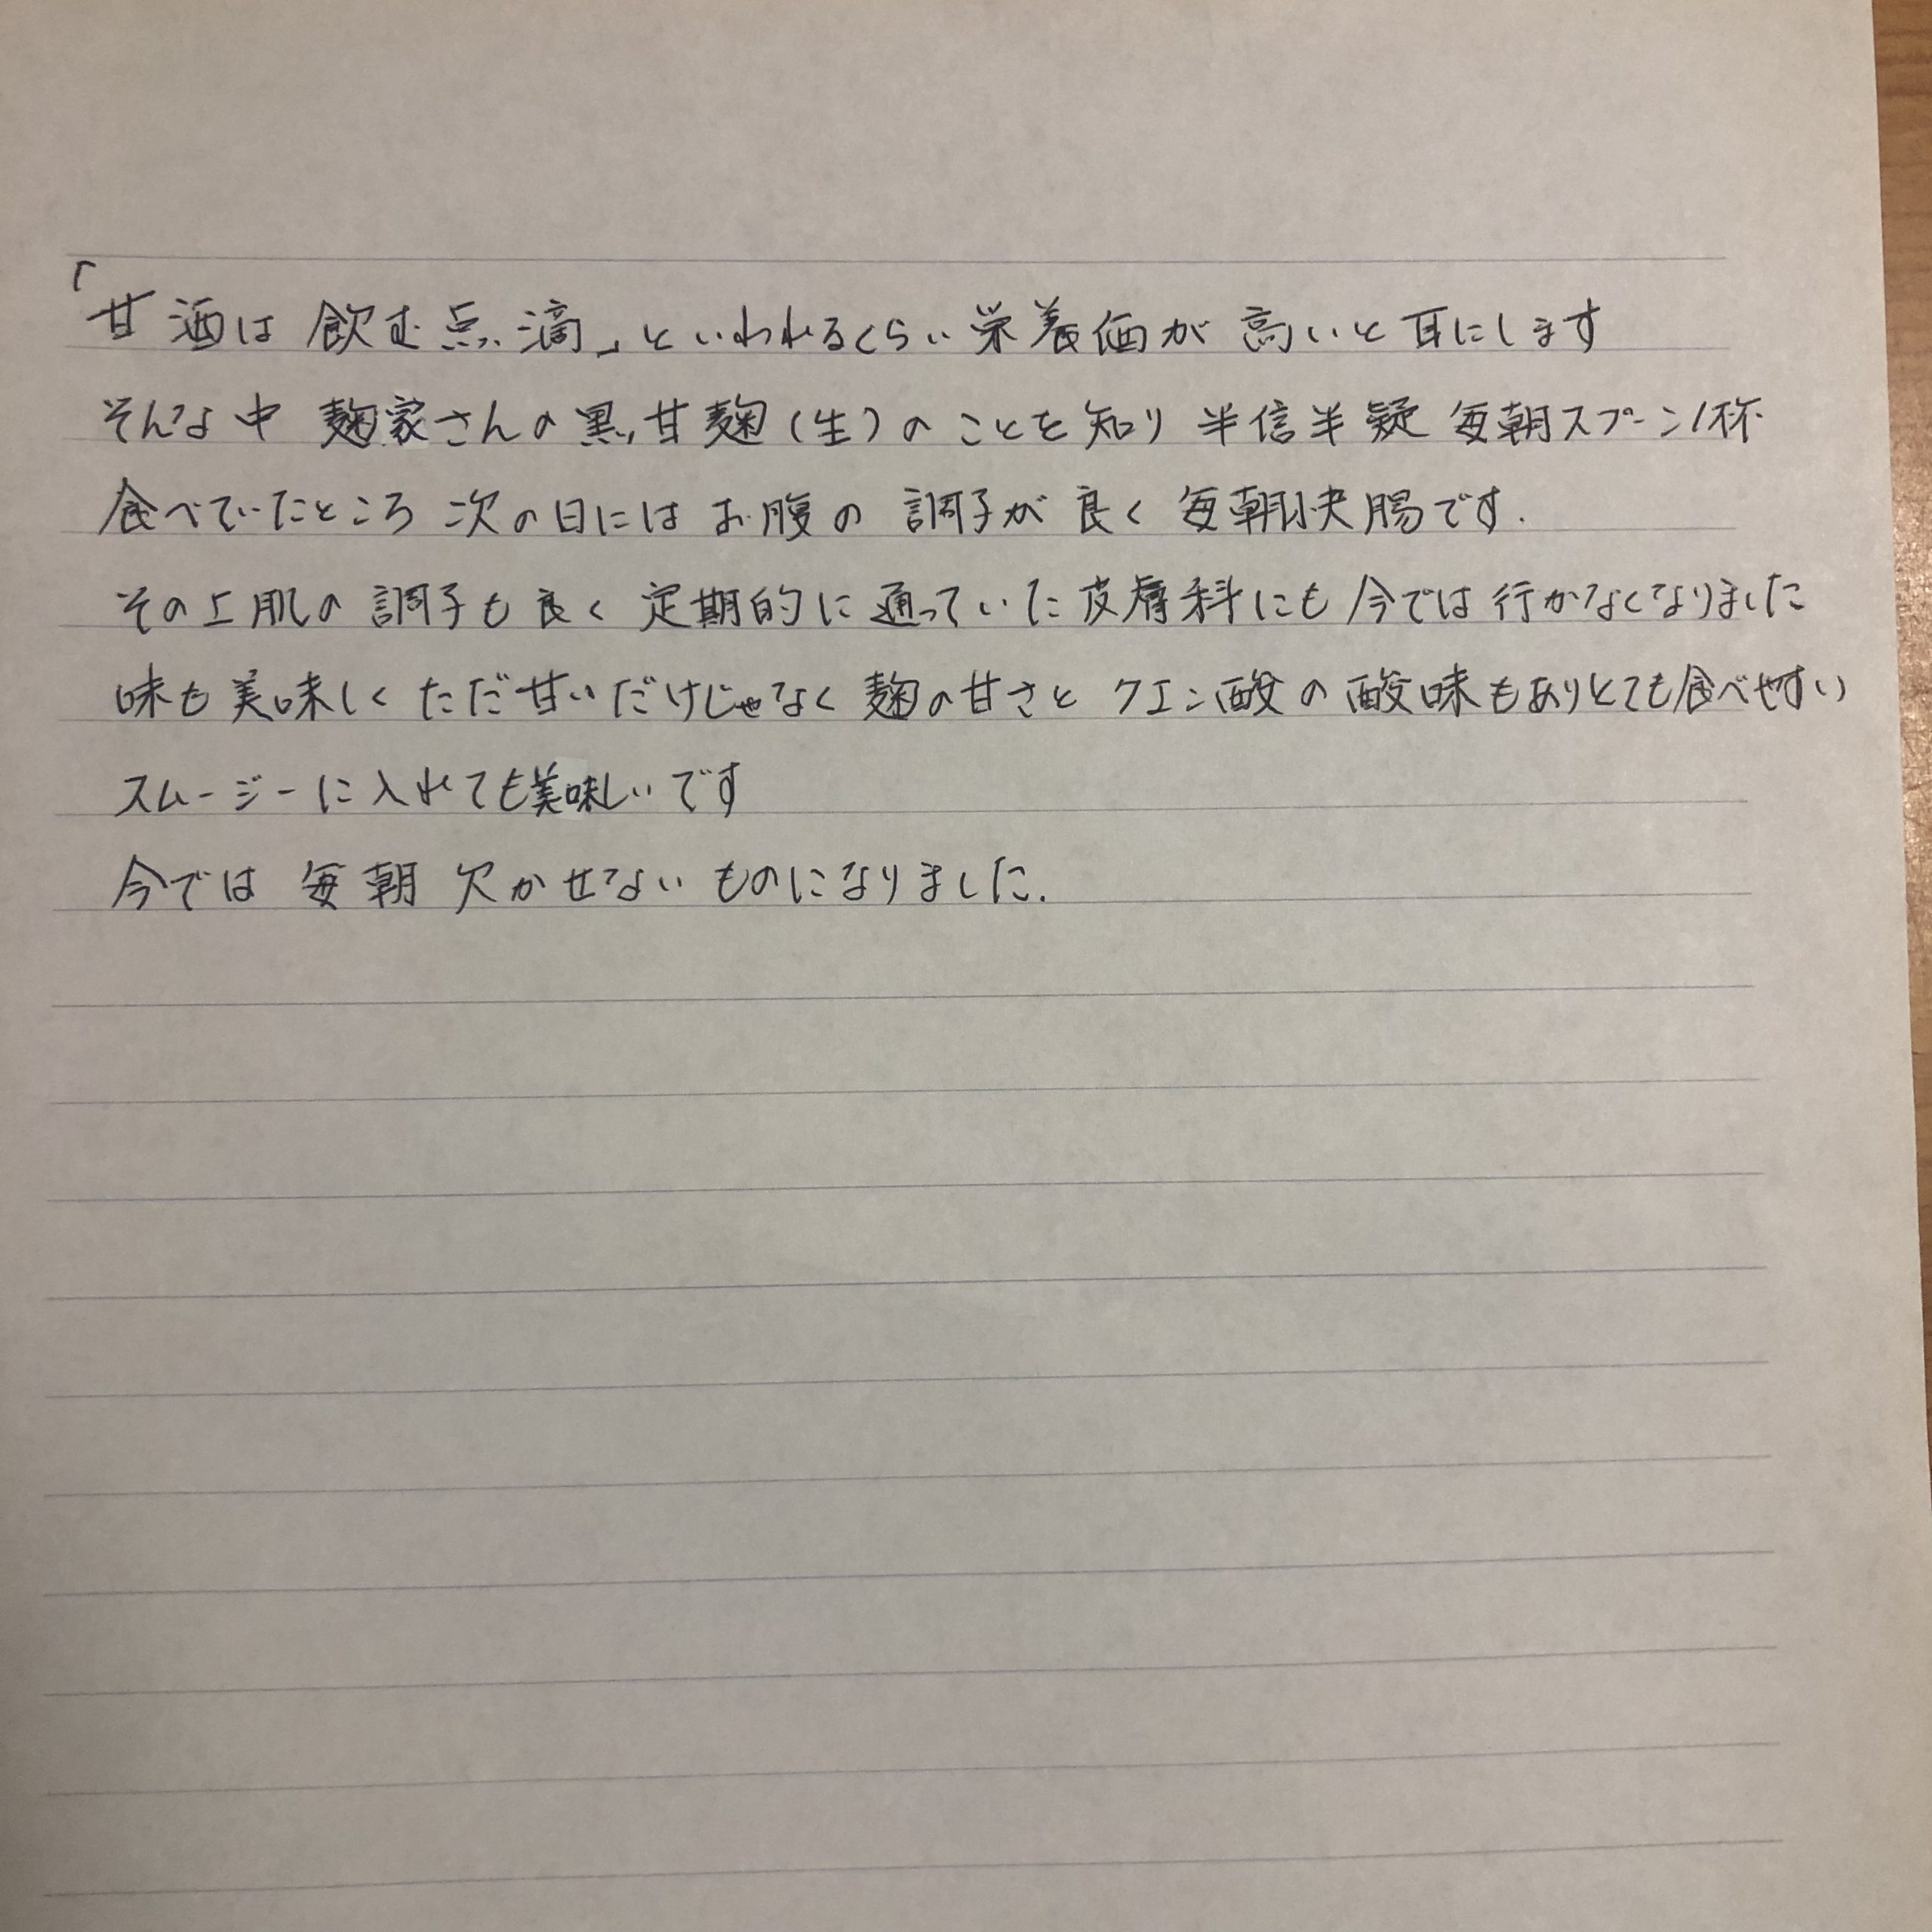 「甘酒は 飲む点滴」といわれるくらい栄養価が 高いと耳にします
そんな中 麹家さんの黒甘麹(生)のことを知り 半信半疑 毎朝スプーン1杯
食べていたところ 次の日には お腹の 調子が 良く 毎朝快腸です.
その上肌の 調子も良く 定期的に通っていた皮膚科にも 今では行かなくなりました
味も美味しく ただ甘いだけじゃなく 麹の甘さと クエン酸の酸味もありとても食べやすい
スムージーに入れても美味しいです
今では 毎朝 欠かせない ものになりました.